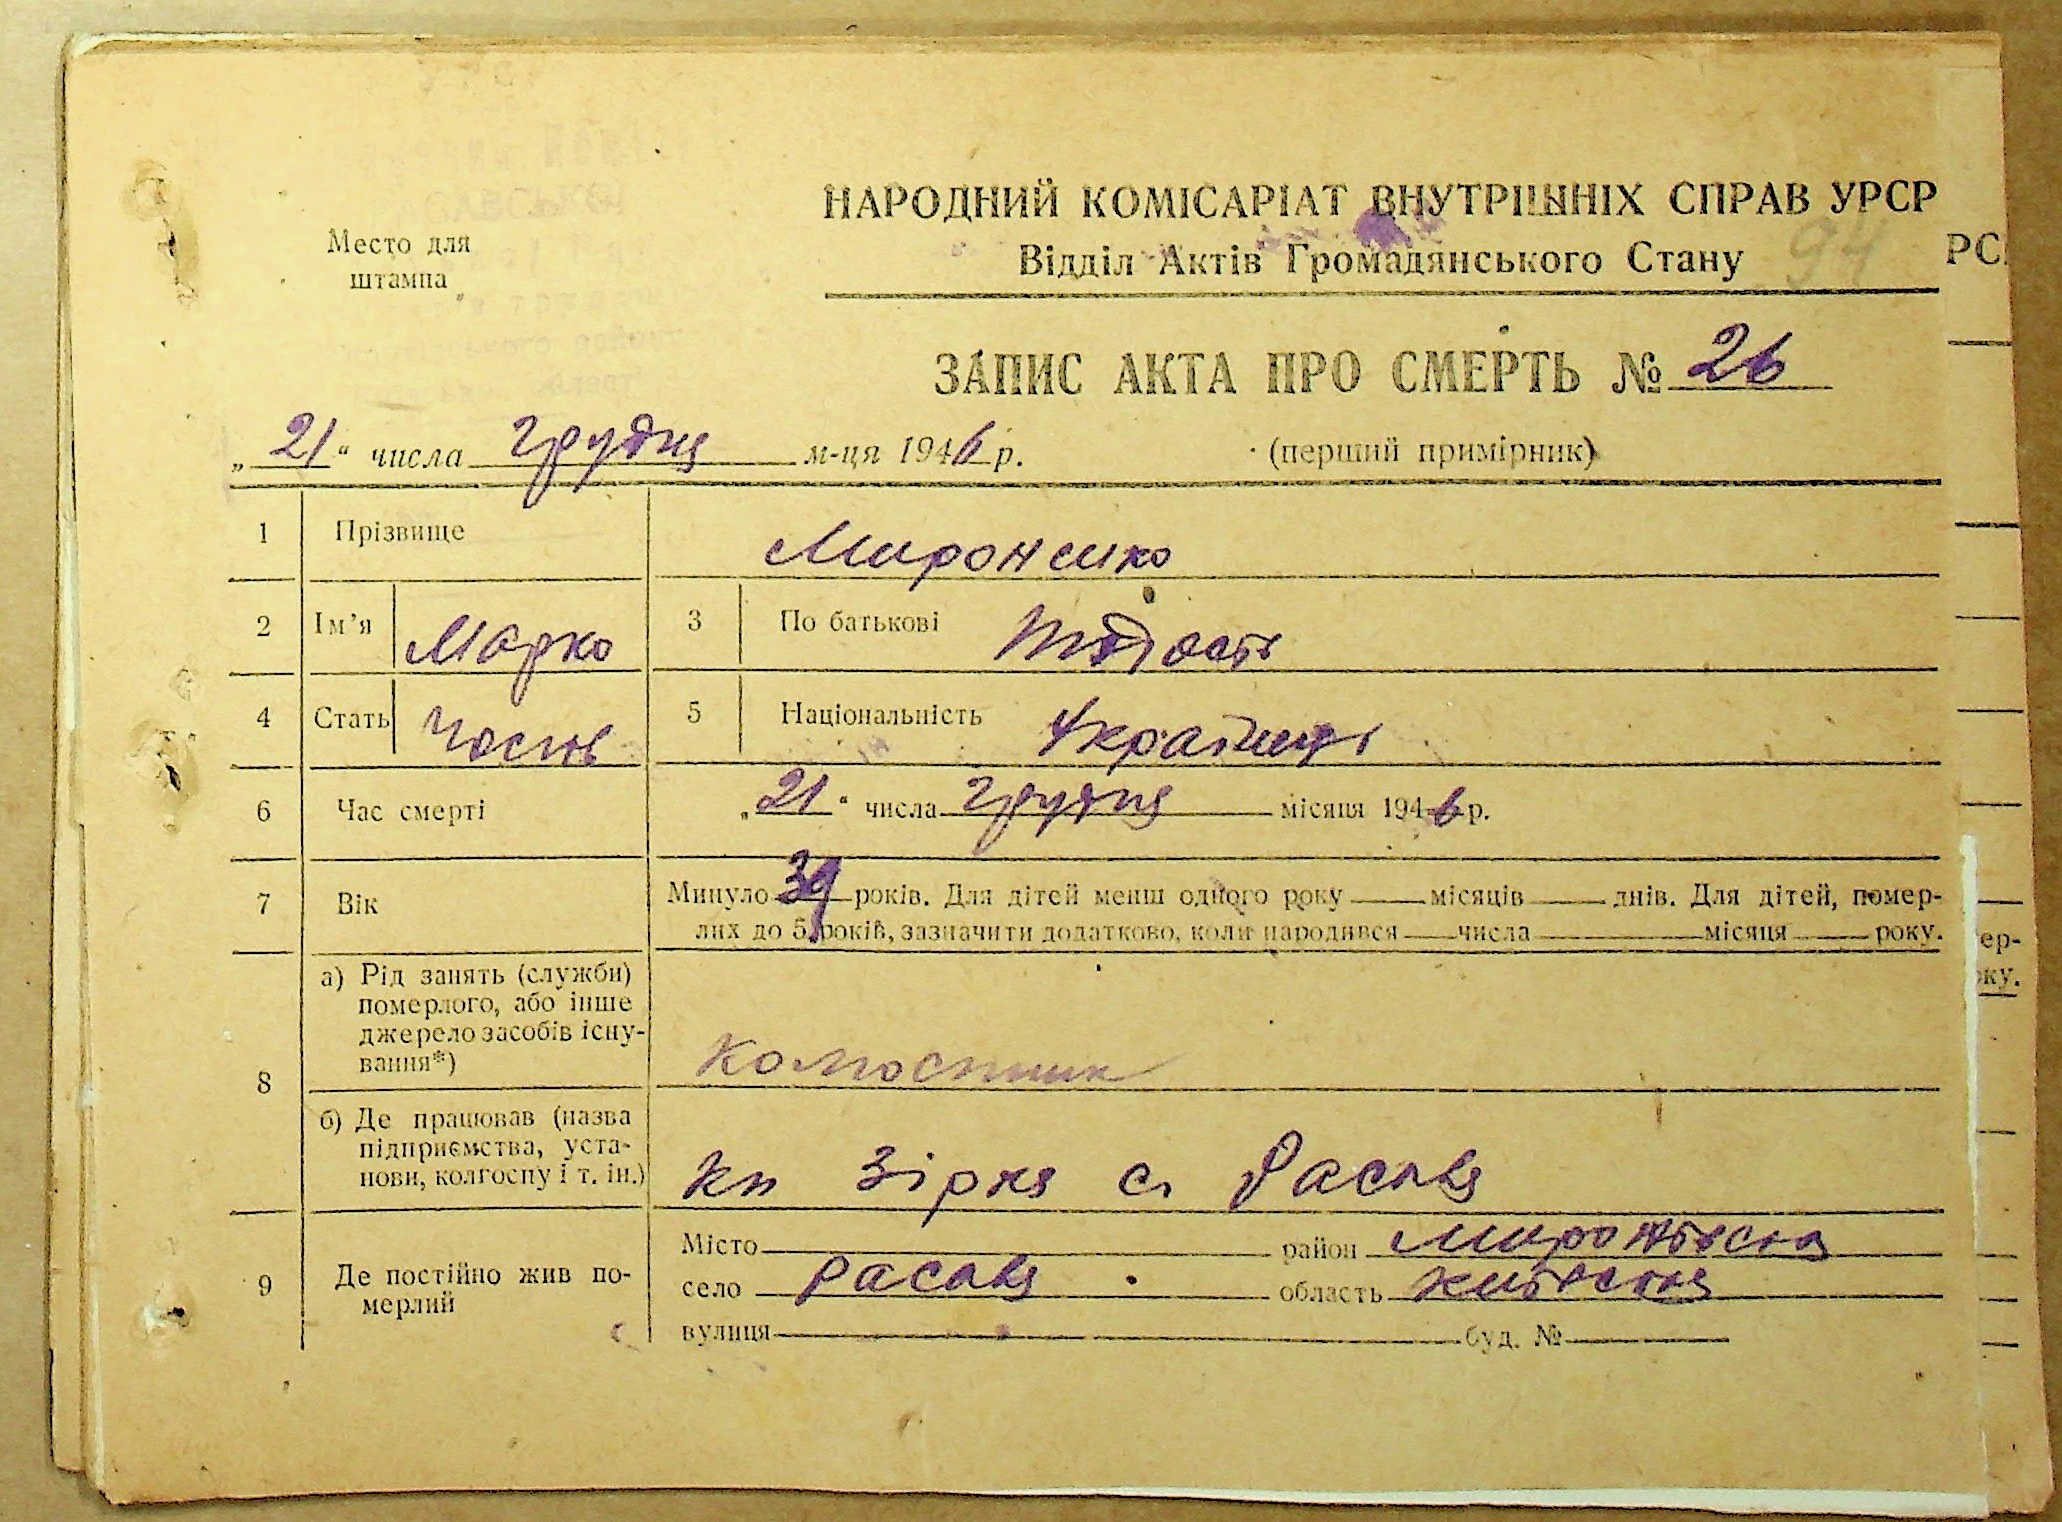 Место для
штампа
НАРОДНИЙ КОМІСАРІАТ ВНУТРІШНІХ СПРАВ УРСР
Відділ Актів Громадянського Стану 94
РС
ЗАПИС АКТА ПРО СМЕРТЬ № 26
„21“ числа грудня м-ця 1946 р. (перший примірник)
1 Прізвище Мироненко
2 Ім’я Марко 3 По батькові
4 Стать 5 Національність Українець
6 Час смерті „21“ числа грудня місяця 1946 р.
7 Вік Минуло 39 років. Для дітей менш одного року місяців днів. Для дітей, помер-
лих до 5 років, зазначити додатково, коли народився числа місяця року.
ер-
оку.
8 а) Рід занять (служби)
померлого, або інше
джерело засобів існу-
вання*) колгоспник
б) Де працював (назва
підприємства, уста-
нови, колгоспу і т. ін.) кп Зірка с. Расава
9 Де постійно жив по-
мерлий
Місто район Миронівська
село Расава область Київська
вулиця буд. №